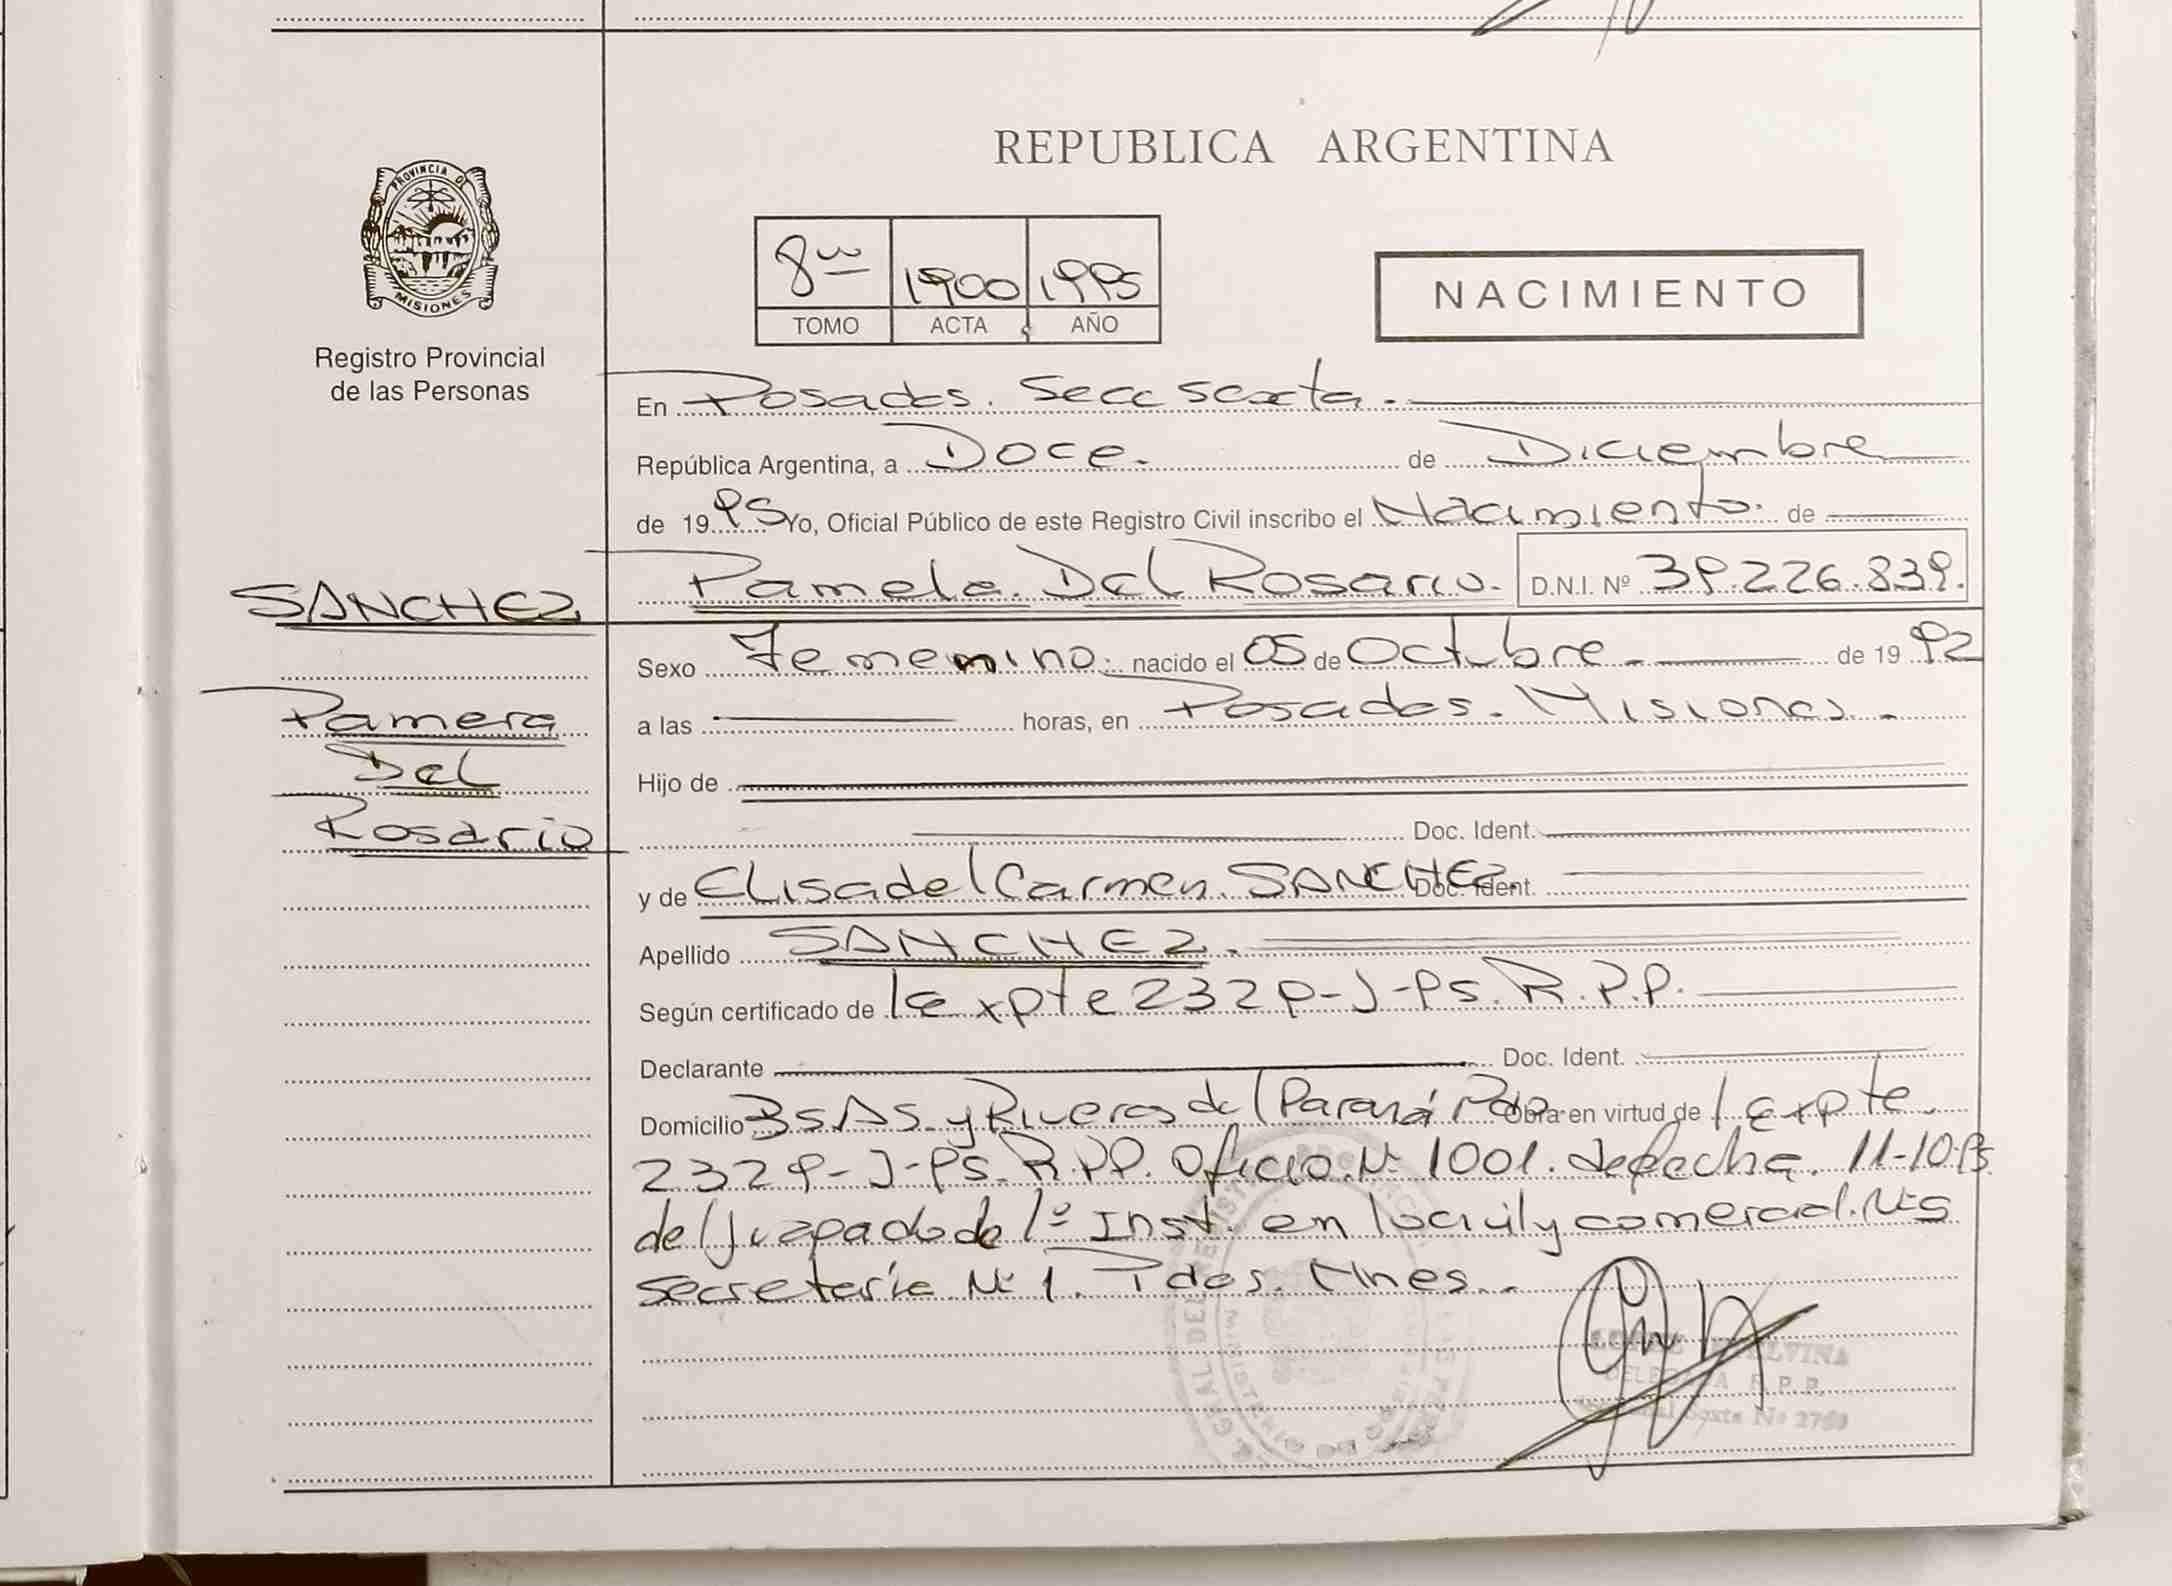 PROVINCIA DE
MISIONES
Registro Provincial
de las Personas
REPUBLICA ARGENTINA
8vo 1900 1995
TOMO ACTA AÑO
NACIMIENTO
En Posadas. Secc Sexta.
República Argentina, a Doce. de Diciembre
de 1995 Yo, Oficial Público de este Registro Civil inscribo el Nacimiento. de
SANCHEZ
Pamela Del Rosario
Pamela Del Rosario. D.N.I. Nº 39.226.839.
Sexo Femenino. nacido el 05 de Octubre. de 1992
a las horas, en Posadas. Misiones.
Hijo de
Doc. Ident.
y de Elisa del Carmen. SANCHEZ. Doc. Ident.
Apellido SANCHEZ.
Según certificado de Expte 2329-J-95. R.P.P.
Declarante Doc. Ident.
Domicilio Bs As. y Riveras del Paraná Pdas. Obra en virtud de Expte.
2329-J-95. R.P.P. Oficio. Nº 1001. de fecha. 11-10-95
del Juzgado de 1º Inst. en lo civil y comercial. Nº 5
Secretaría Nº 1. Pdas. Mnes.
DELEGADA R. P. P.
Sexta Nº 2769